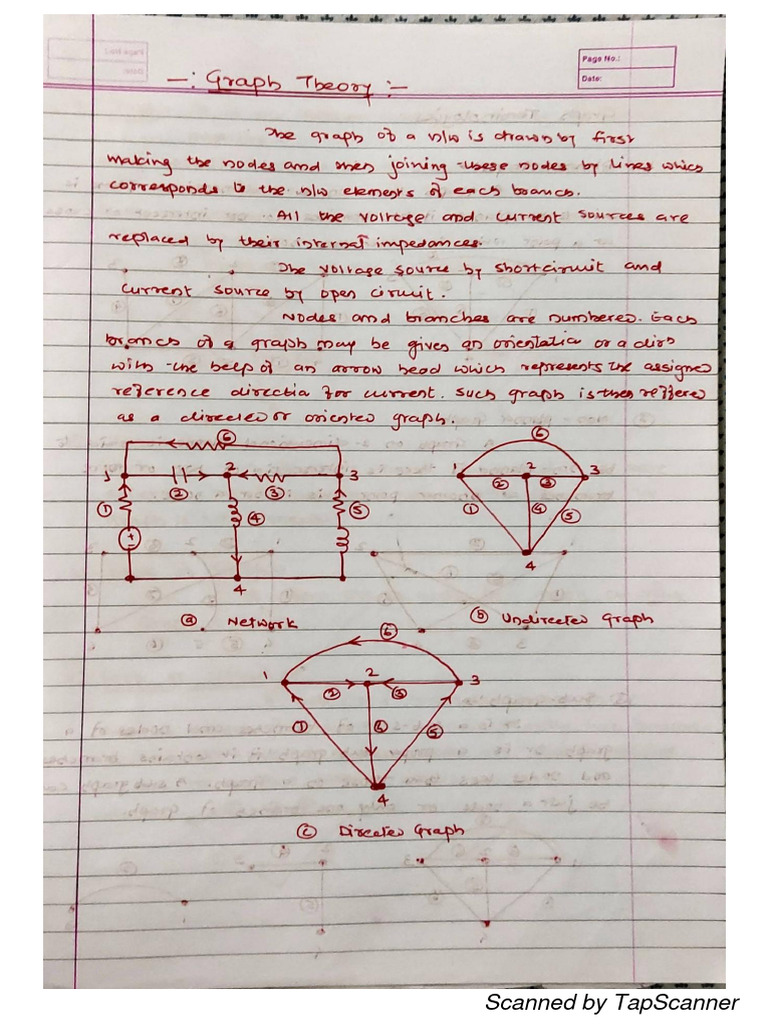 Page No.:
Date:
-: Graph Theory :-
The graph of a n/w is drawn by first
making the nodes and then joining these nodes by lines which
corresponds to the n/w elements of each branch.
All the voltage and current sources are
replaced by their internal impedances.
The voltage source by shortcircuit and
current source by open circuit.
Nodes and branches are numbered. Each
branch of a graph may be given an orientatio or a dirn
with the help of an arrow head which represents the assigned
reference directio for current. Such graph is then reffered
as a directed or oriented graph.
6
1 2 2 3 3
1 4 5
+
-
4
6
1 2 3
2 3
1 4 5
4
(a) Network
(b) Undirected Graph
6
1 2 3
2 3
1 4 5
4
(c) Directed Graph
Scanned by TapScanner